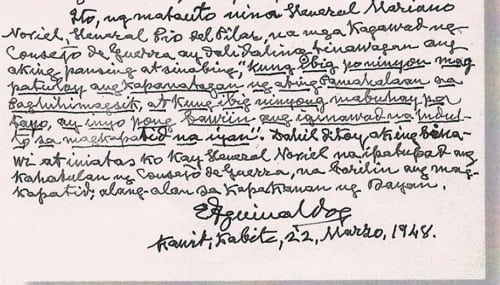 Ito, ng matanto nina General Mariano
Noriel, General Pio del Pilar, na mga Kagawad ng
Consejo de Guerra ay dalidaling tinawagan ang
aking pansing at sinabing, "Kung ibig po ninyong mag
patuloy ang kapanatagan ng ating Pamahalaan na
Paghihimagsik, at kung ibig ninyong mabuhay pa
tayo, ay inyo pong bawiin ang iginawad na indul-
to sa magkapatid na iyan". Dahil dito'y aking bina-
wi at iniatas ko kay General Noriel na ipatupad ang
kahatulan ng Consejo de Guerra, na barilin ang mag-
kapatid, alang-alan sa kapakanan ng bayan.
EAguinaldo
Kawit, Kabite, 22, Marzo, 1948.